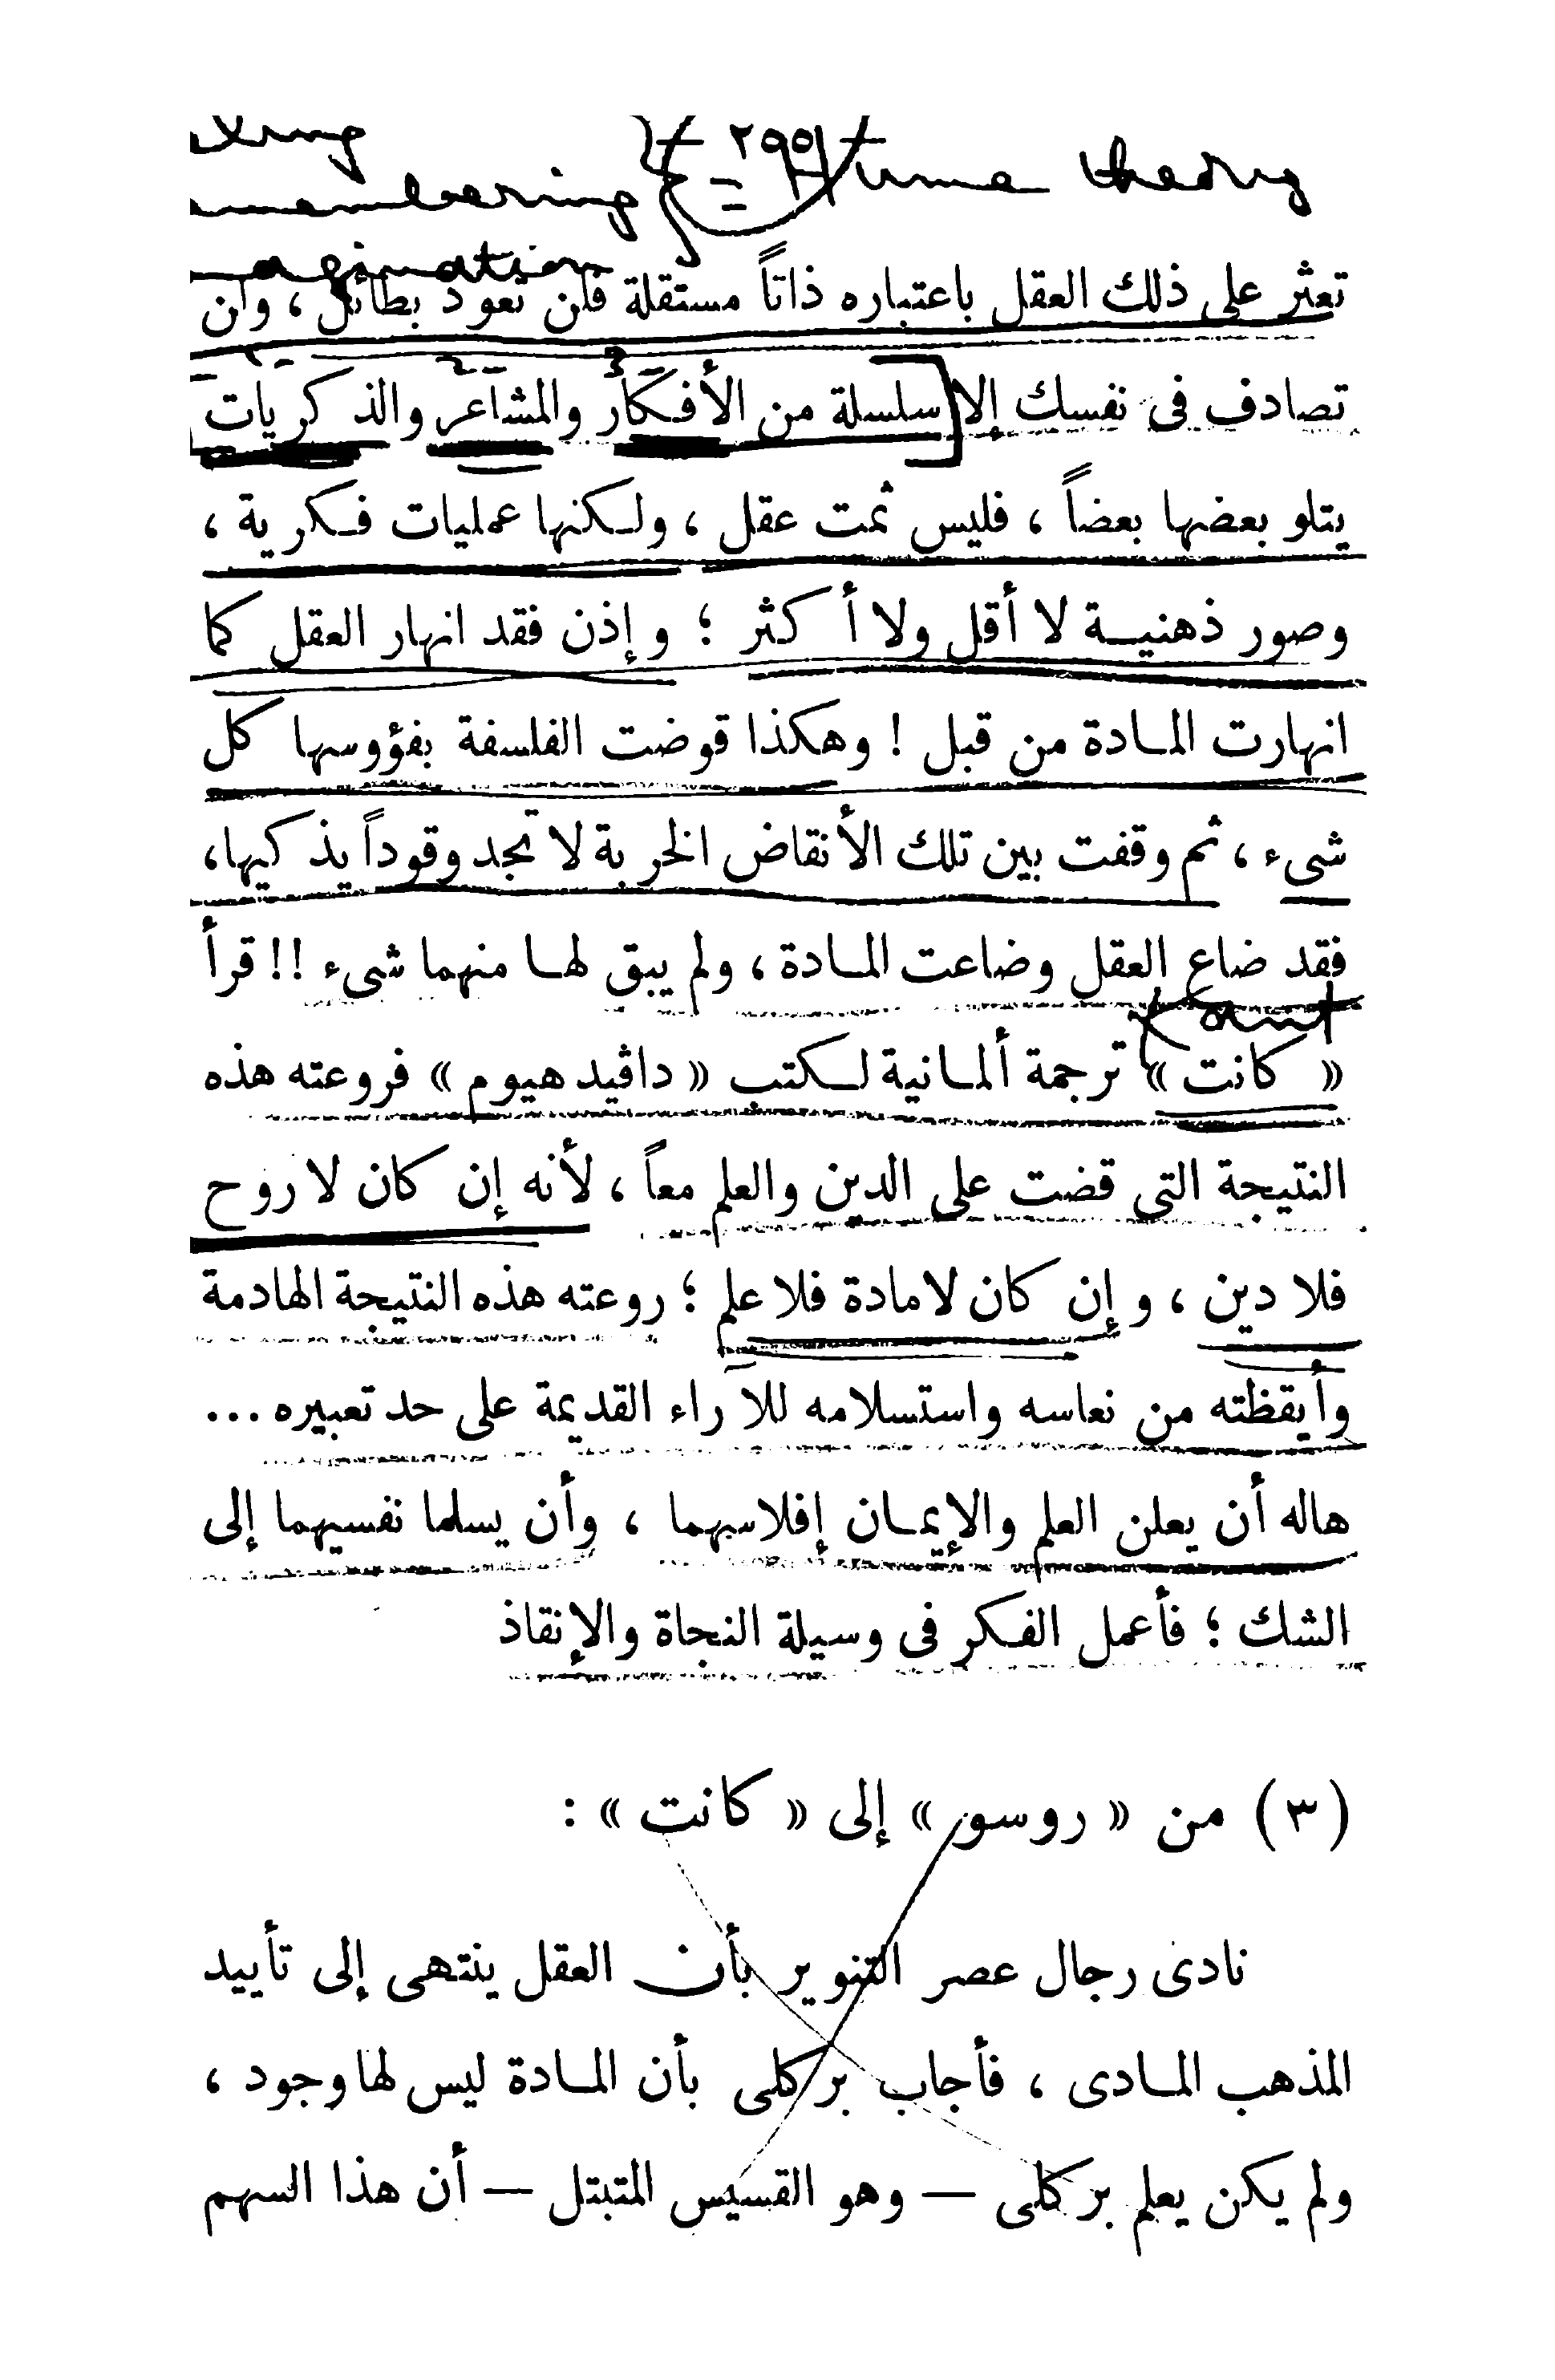 — ٢٥٥ —
Hume theory
تعثر على ذلك العقل باعتباره ذاتاً مستقلة فلن تعود بطائل ، ولن
تصادف فى نفسك إلا سلسلة من الأفكار والمشاعر والذكريات
يتلو بعضها بعضاً ، فليس ثمت عقل ، ولكنها عمليات فكرية ،
وصور ذهنية لا أقل ولا أكثر ؛ وإذن فقد انهار العقل كما
انهارت المادة من قبل ! وهكذا قوضت الفلسفة بفؤوسها كل
شىء ، ثم وقفت بين تلك الأنقاض الخربة لا تجد وقوداً يذكيها،
فقد ضاع العقل وضاعت المادة ، ولم يبق لها منهما شىء !! قرأ
Kant
« كانت » ترجمة ألمانية لكتب « داڤيد هيوم » فروعته هذه
النتيجة التى قضت على الدين والعلم معاً ، لأنه إن كان لا روح
فلا دين ، وإن كان لا مادة فلا علم ؛ روعته هذه النتيجة الهادمة
وأيقظته من نعاسه واستسلامه للآراء القديمة على حد تعبيره ...
هاله أن يعلن العلم والإيمان إفلاسهما ، وأن يسلما نفسيهما إلى
الشك ؛ فأعمل الفكر فى وسيلة النجاة والإنقاذ
(٣) من « روسو » إلى « كانت » :
نادى رجال عصر التنوير بأن العقل ينتهى إلى تأييد
المذهب المادى ، فأجاب بركلى بأن المادة ليس لها وجود ،
ولم يكن يعلم بركلى — وهو القسيس المتبتل — أن هذا السهم